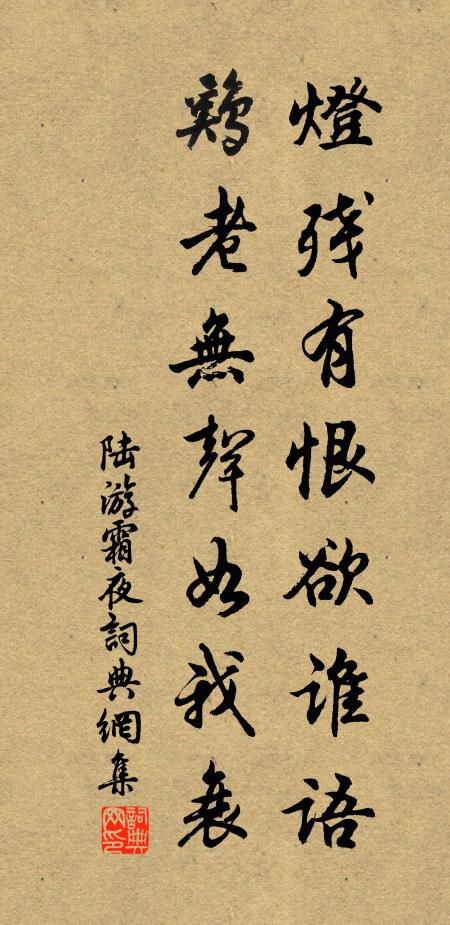 燈残有恨欲谁語
鷄老無聲如我衰
陆游霜夜詞典網集
詞典网印